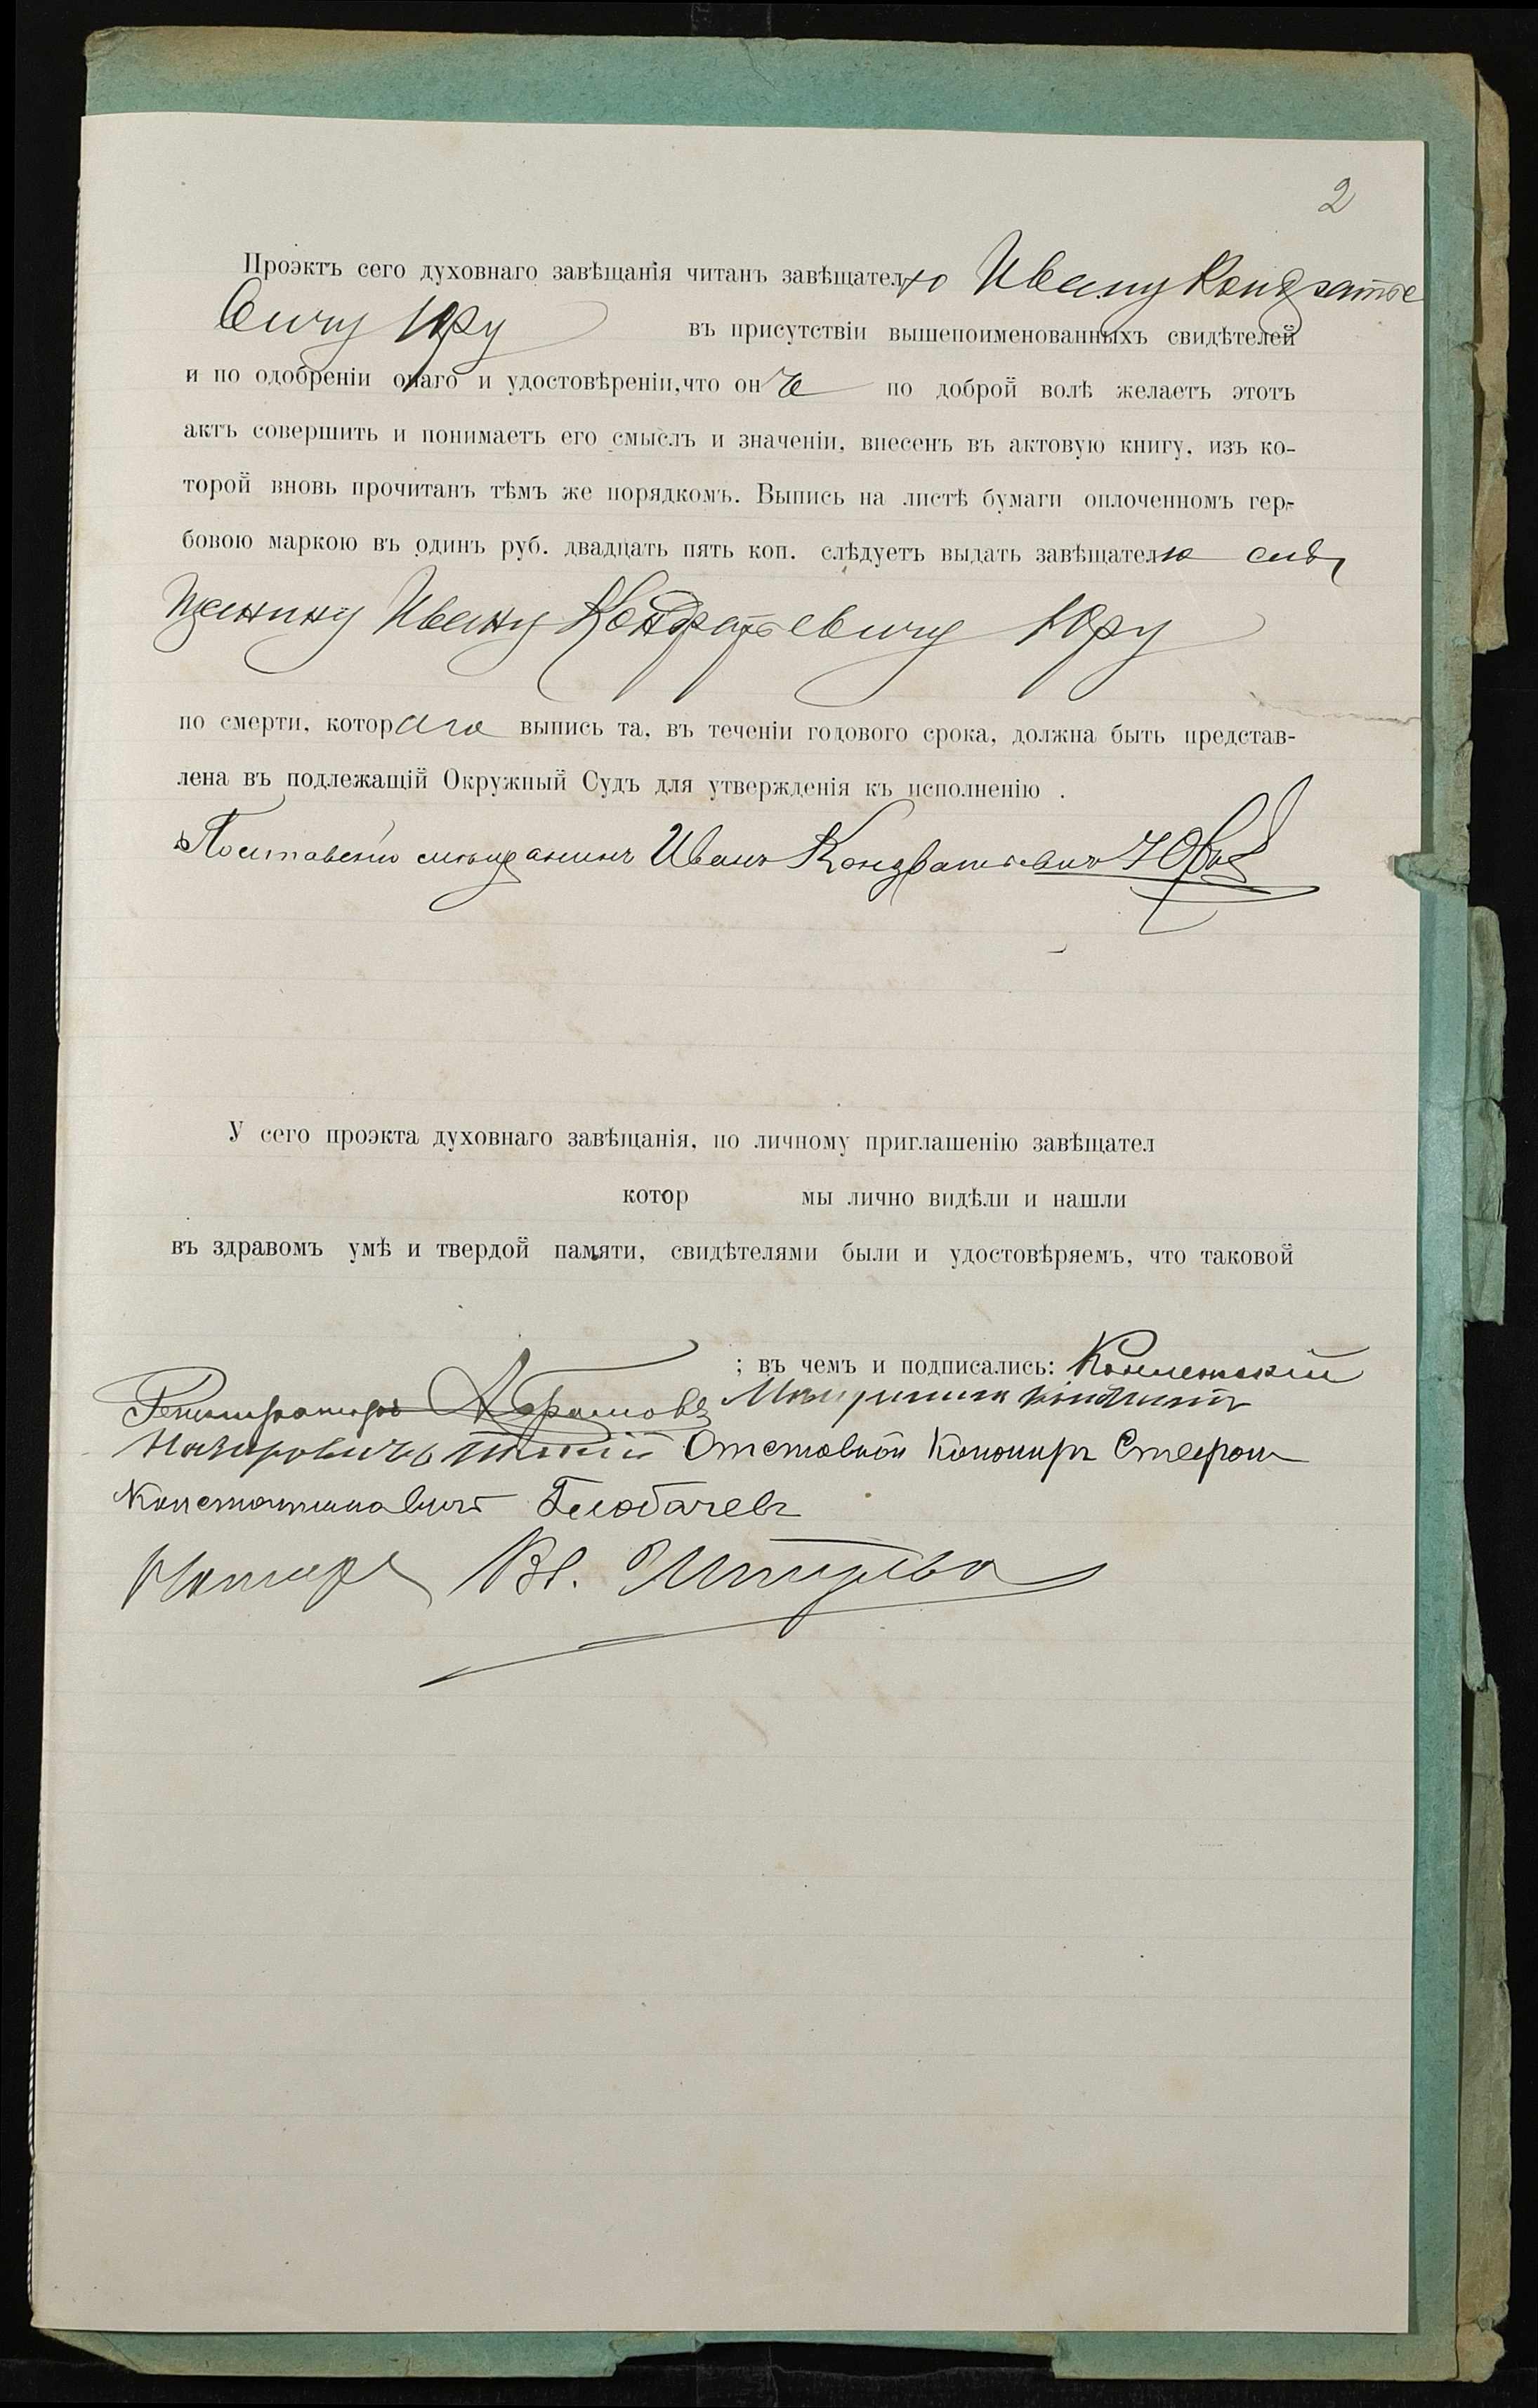 2
Проэктъ сего духовнаго завѣщанія читанъ завѣщателю Ивану Кондратье
вичу Юру въ присутствіи вышепоименованныхъ свидѣтелей
и по одобреніи онаго и удостовѣреніи, что онъ по доброй волѣ желаетъ этотъ
актъ совершить и понимаетъ его смыслъ и значеніи, внесенъ въ актовую книгу, изъ ко-
торой вновь прочитанъ тѣмъ же порядкомъ. Выпись на листѣ бумаги оплоченномъ гер-
бовою маркою въ одинъ руб. двадцать пять коп. слѣдуетъ выдать завѣщателю
щанину Ивану Кондратьевичу Юру
по смерти, котораго выпись та, въ теченіи годового срока, должна быть представ-
лена въ подлежащій Окружный Судъ для утвержденія къ исполненію .
Иванъ Кондратьевичъ Юръ
У сего проэкта духовнаго завѣщанія, по личному приглашенію завѣщател
котор мы лично видѣли и нашли
въ здравомъ умѣ и твердой памяти, свидѣтелями были и удостовѣряемъ, что таковой
; въ чемъ и подписались:
Отставной Стефанъ
Константиновичъ
Нотаріусъ Вл.